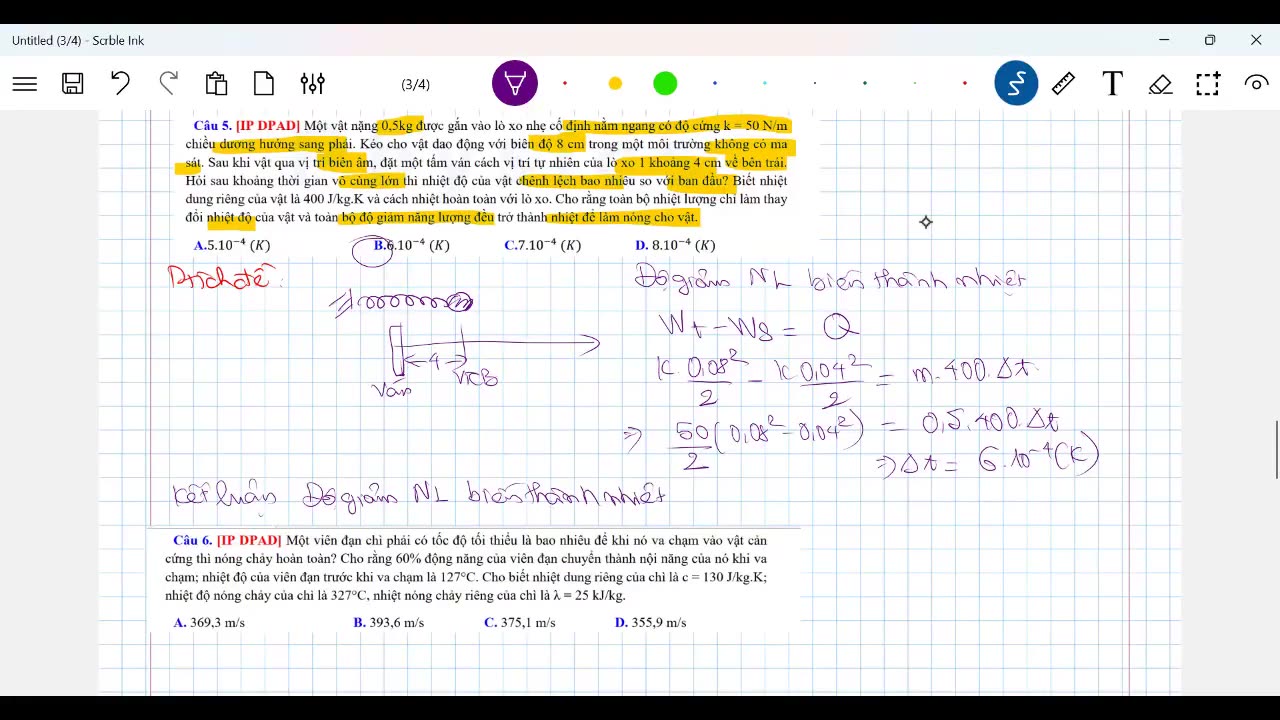 Untitled (3/4) - Scrble Ink
(3/4)
T
Câu 5. [IP DPAD] Một vật nặng 0,5kg được gắn vào lò xo nhẹ cố định nằm ngang có độ cứng k = 50 N/m
chiều dương hướng sang phải. Kéo cho vật dao động với biên độ 8 cm trong một môi trường không có ma
sát. Sau khi vật qua vị trí biên âm, đặt một tấm ván cách vị trí tự nhiên của lò xo 1 khoảng 4 cm về bên trái.
Hỏi sau khoảng thời gian vô cùng lớn thì nhiệt độ của vật chênh lệch bao nhiêu so với ban đầu? Biết nhiệt
dung riêng của vật là 400 J/kg.K và cách nhiệt hoàn toàn với lò xo. Cho rằng toàn bộ nhiệt lượng chỉ làm thay
đổi nhiệt độ của vật và toàn bộ độ giảm năng lượng đều trở thành nhiệt để làm nóng cho vật.
A.5.10⁻⁴ (K) B.6.10⁻⁴ (K) C.7.10⁻⁴ (K) D. 8.10⁻⁴ (K)
Độ giảm NL biến thành nhiệt
Wt - Ws = Q
4
Ván VTCB
K.0,08²/2 - K 0,04²/2 = m.400.Δt
=> 50/2 (0,08² - 0,04²) = 0,5.400.Δt
=> Δt = 6.10⁻⁴ (K)
Kết luận Độ giảm NL biến thành nhiệt
Câu 6. [IP DPAD] Một viên đạn chì phải có tốc độ tối thiểu là bao nhiêu để khi nó va chạm vào vật cản
cứng thì nóng chảy hoàn toàn? Cho rằng 60% động năng của viên đạn chuyển thành nội năng của nó khi va
chạm; nhiệt độ của viên đạn trước khi va chạm là 127°C. Cho biết nhiệt dung riêng của chì là c = 130 J/kg.K;
nhiệt độ nóng chảy của chì là 327°C, nhiệt nóng chảy riêng của chì là λ = 25 kJ/kg.
A. 369,3 m/s B. 393,6 m/s C. 375,1 m/s D. 355,9 m/s